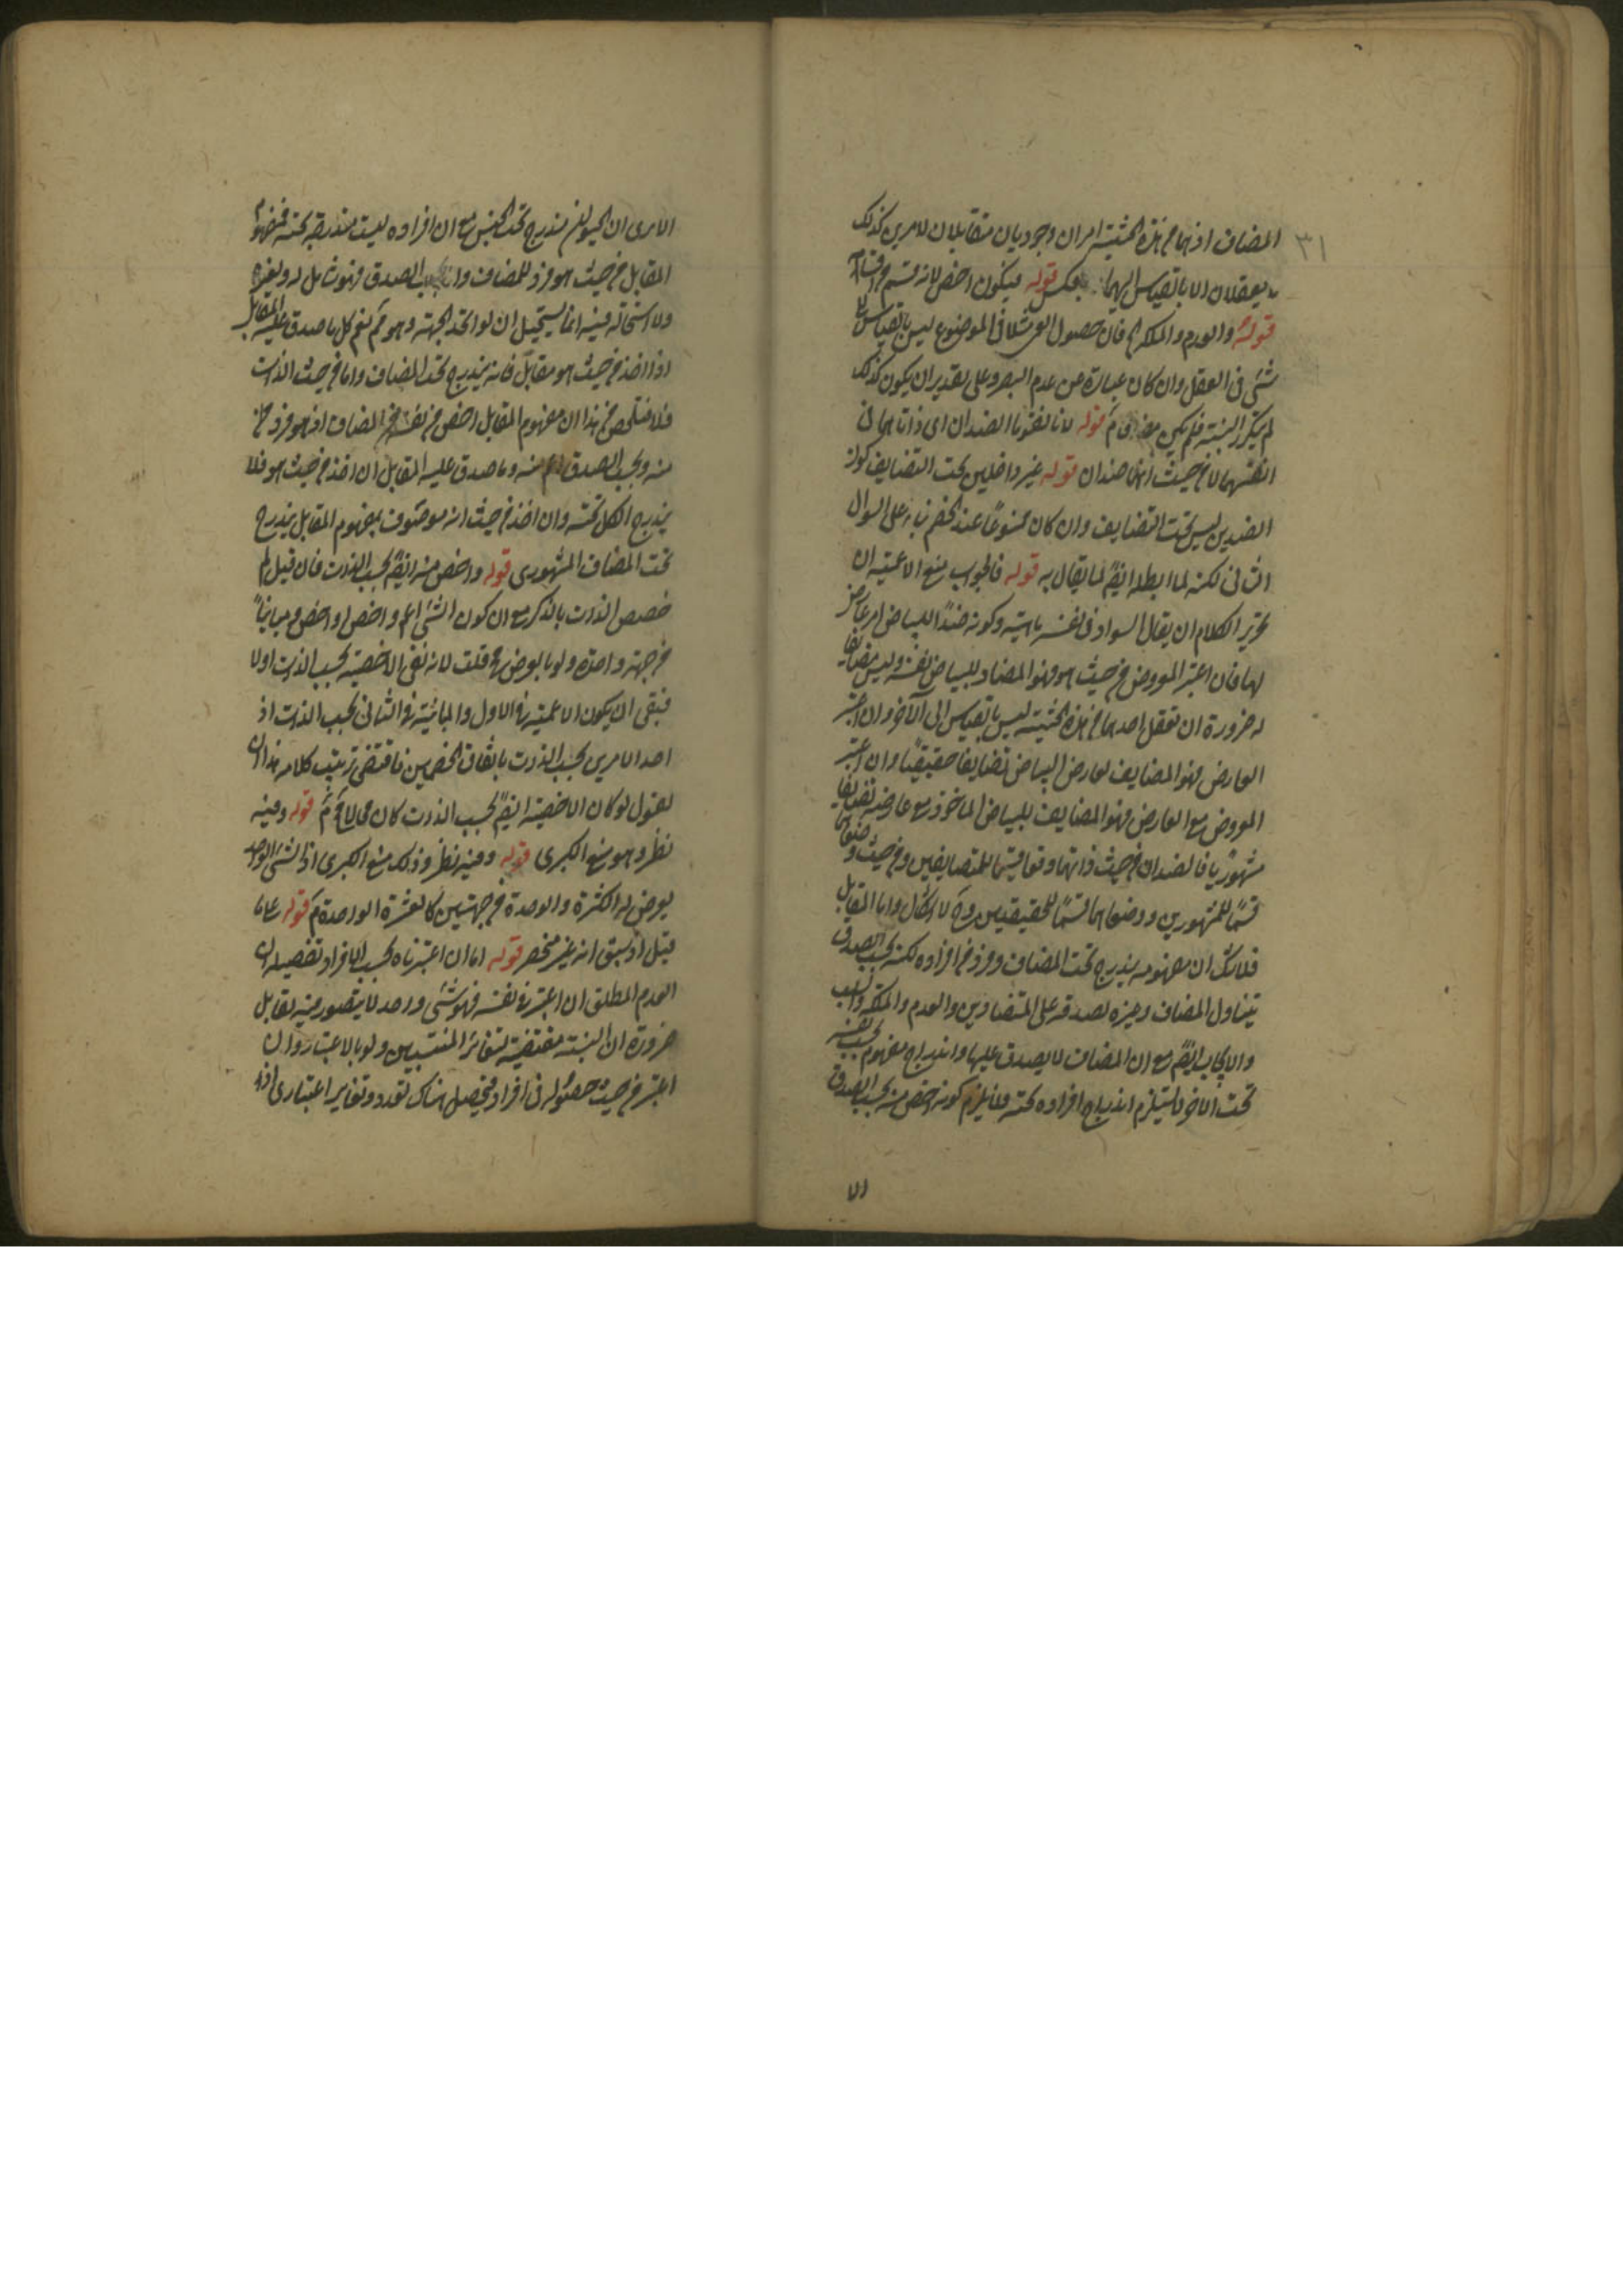 ٣١
المضاف اذ هما من هذه الحيثية امران وجوديان متقابلان لامرين كذلك
يعقلان الا بالقياس اليهما بعكس قوله فيكون اخص لانه قسم من اقسامه
قوله والعدم والملكة فان حصول العمى مثلا فى الموضوع ليس بالقياس الى
شئ فى العقل وان كان عبارة عن عدم البصر وعلى تقدير ان يكون كذلك
لم يتكرر النسبة فلم يكن قوله لانا نقول الضدان اى ذاتاهما فى
انفسهما لا من حيث انهما ضدان قوله غير داخلين تحت التضايف كون
الضدين ليس تحت التضايف وان كان ممنوعا عند الخصم بناء على السوال
الثانى لكنه لما ابطله ايضا لما يقال به قوله فالجواب منع الاعمية ان
تحرير الكلام ان يقال السواد فى نفسه ماهية وكونه ضدا للبياض امر عارض
لها فان اعتبر المعروض من حيث هو فهو المضاد للبياض نفسه وليس مضايفا
له ضرورة ان تعقل احدهما من هذه الحيثية ليس بالقياس الى الآخر وان اعتبر
العارض فهو المضايف لعارض البياض تضايفا حقيقيا وان اعتبر
المعروض مع العارض فهو المضايف للبياض الماخوذ مع عارضه تضايفا
مشهوريا فالضدان من حيث ذاتهما وتعاقبهما للمتضايفين ومن حيث وصفهما
قسما للمشهورين ووصفاهما قسما للحقيقيين وح لا اشكال واما المقابل
فلا شك ان مفهومه يندرج تحت المضاف وفرد من افراده لكنه بحسب الصدق
يتناول المضاف وغيره لصدقه على المتضادين والعدم والملكة والسلب
والايجاب ايضا مع ان المضاف لا يصدق عليها واندراج مفهوم بحسب نفسه
تحت الآخر لا يستلزم اندراج افراده تحته فلا يلزم كونه اخص منه بحسب الصدق
الا
الا يرى ان الحيوان مندرج تحت الجنس مع ان افراده ليست مندرجة تحته فمفهوم
المقابل من حيث هو فرد للمضاف واما بحسب الصدق فهو شامل له ولغيره
ولا استحالة فيه انما يستحيل ان لو اتحد الجهة وهو مم نعم كل ما صدق عليه المقابل
اذا اخذ من حيث هو مقابل فانه يندرج تحت المضاف واما من حيث الذات
فلا فتلخص من هذا ان مفهوم المقابل اخص من نفس المضاف اذ هو فرد
منه وبحسب الصدق اعم منه وما صدق عليه المقابل ان اخذ من حيث هو فلا
يندرج الكل تحته وان اخذ من حيث انه موصوف بمفهوم المقابل يندرج
تحت المضاف المشهورى قوله واخص منه ايضا بحسب الذات فان قيل لم
خصص الذات بالذكر مع ان كون الشئ اعم واخص او اخص ومباينا
من جهة واحدة ولو بالعرض مح قلت لانه نفى الاخصية بحسب الذات اولا
فبقى ان يكون الاعمية فى الاول والمباينة فى الثانى بحسب الذات اذ
احد الامرين بحسب الذات باتفاق الخصمين فاقتضى ترتيب كلامه هذا ان
نقول لو كان الاخصية ايضا بحسب الذات كان محالا قوله وفيه
نظر وهو منع الكبرى قوله وفيه نظر وذلك منع الكبرى اذ الشئ الواحد
يعرض له الكثرة والوحدة من جهتين كالعشرة الواحدة قوله على ما
قيل اذ سبق انه غير منحصر قوله اما ان اعتبرناه بحسب الافراد تفصيله ان
العدم المطلق ان اعتبر فى نفسه فهو شئ واحد لا يتصور فيه تقابل
ضرورة ان النسبة مقتضية لتغائر المنتسبين ولو بالاعتبار وان
اعتبر من حيث حصوله فى افراد فيحصل هناك تعدد وتغاير اعتبارى اذا